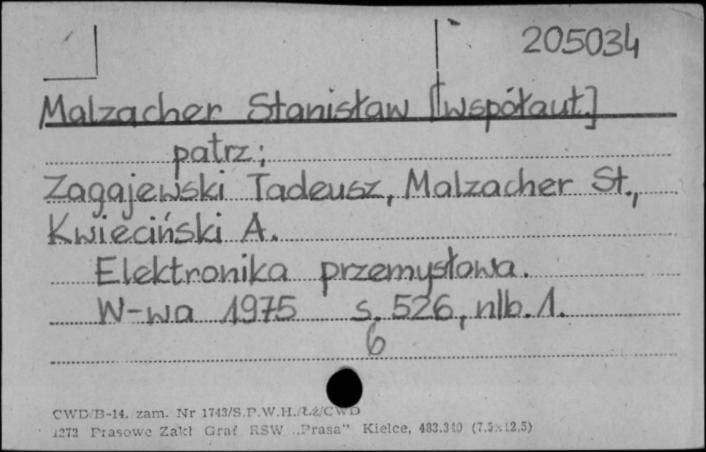 205034
Malzacher Stanisław [współaut.]
patrz;
Zagajewski Tadeusz, Malzacher St.,
Kwieciński A.
Elektronika przemysłowa.
W-wa 1975 s. 526, nlb. 1.
6
CWD/B-14. zam. Nr 1743/S.P.W.H./Łż/CWD
1273 Prasowe Zakł Graf RSW „Prasa" Kielce, 483.340 (7.5x12.5)